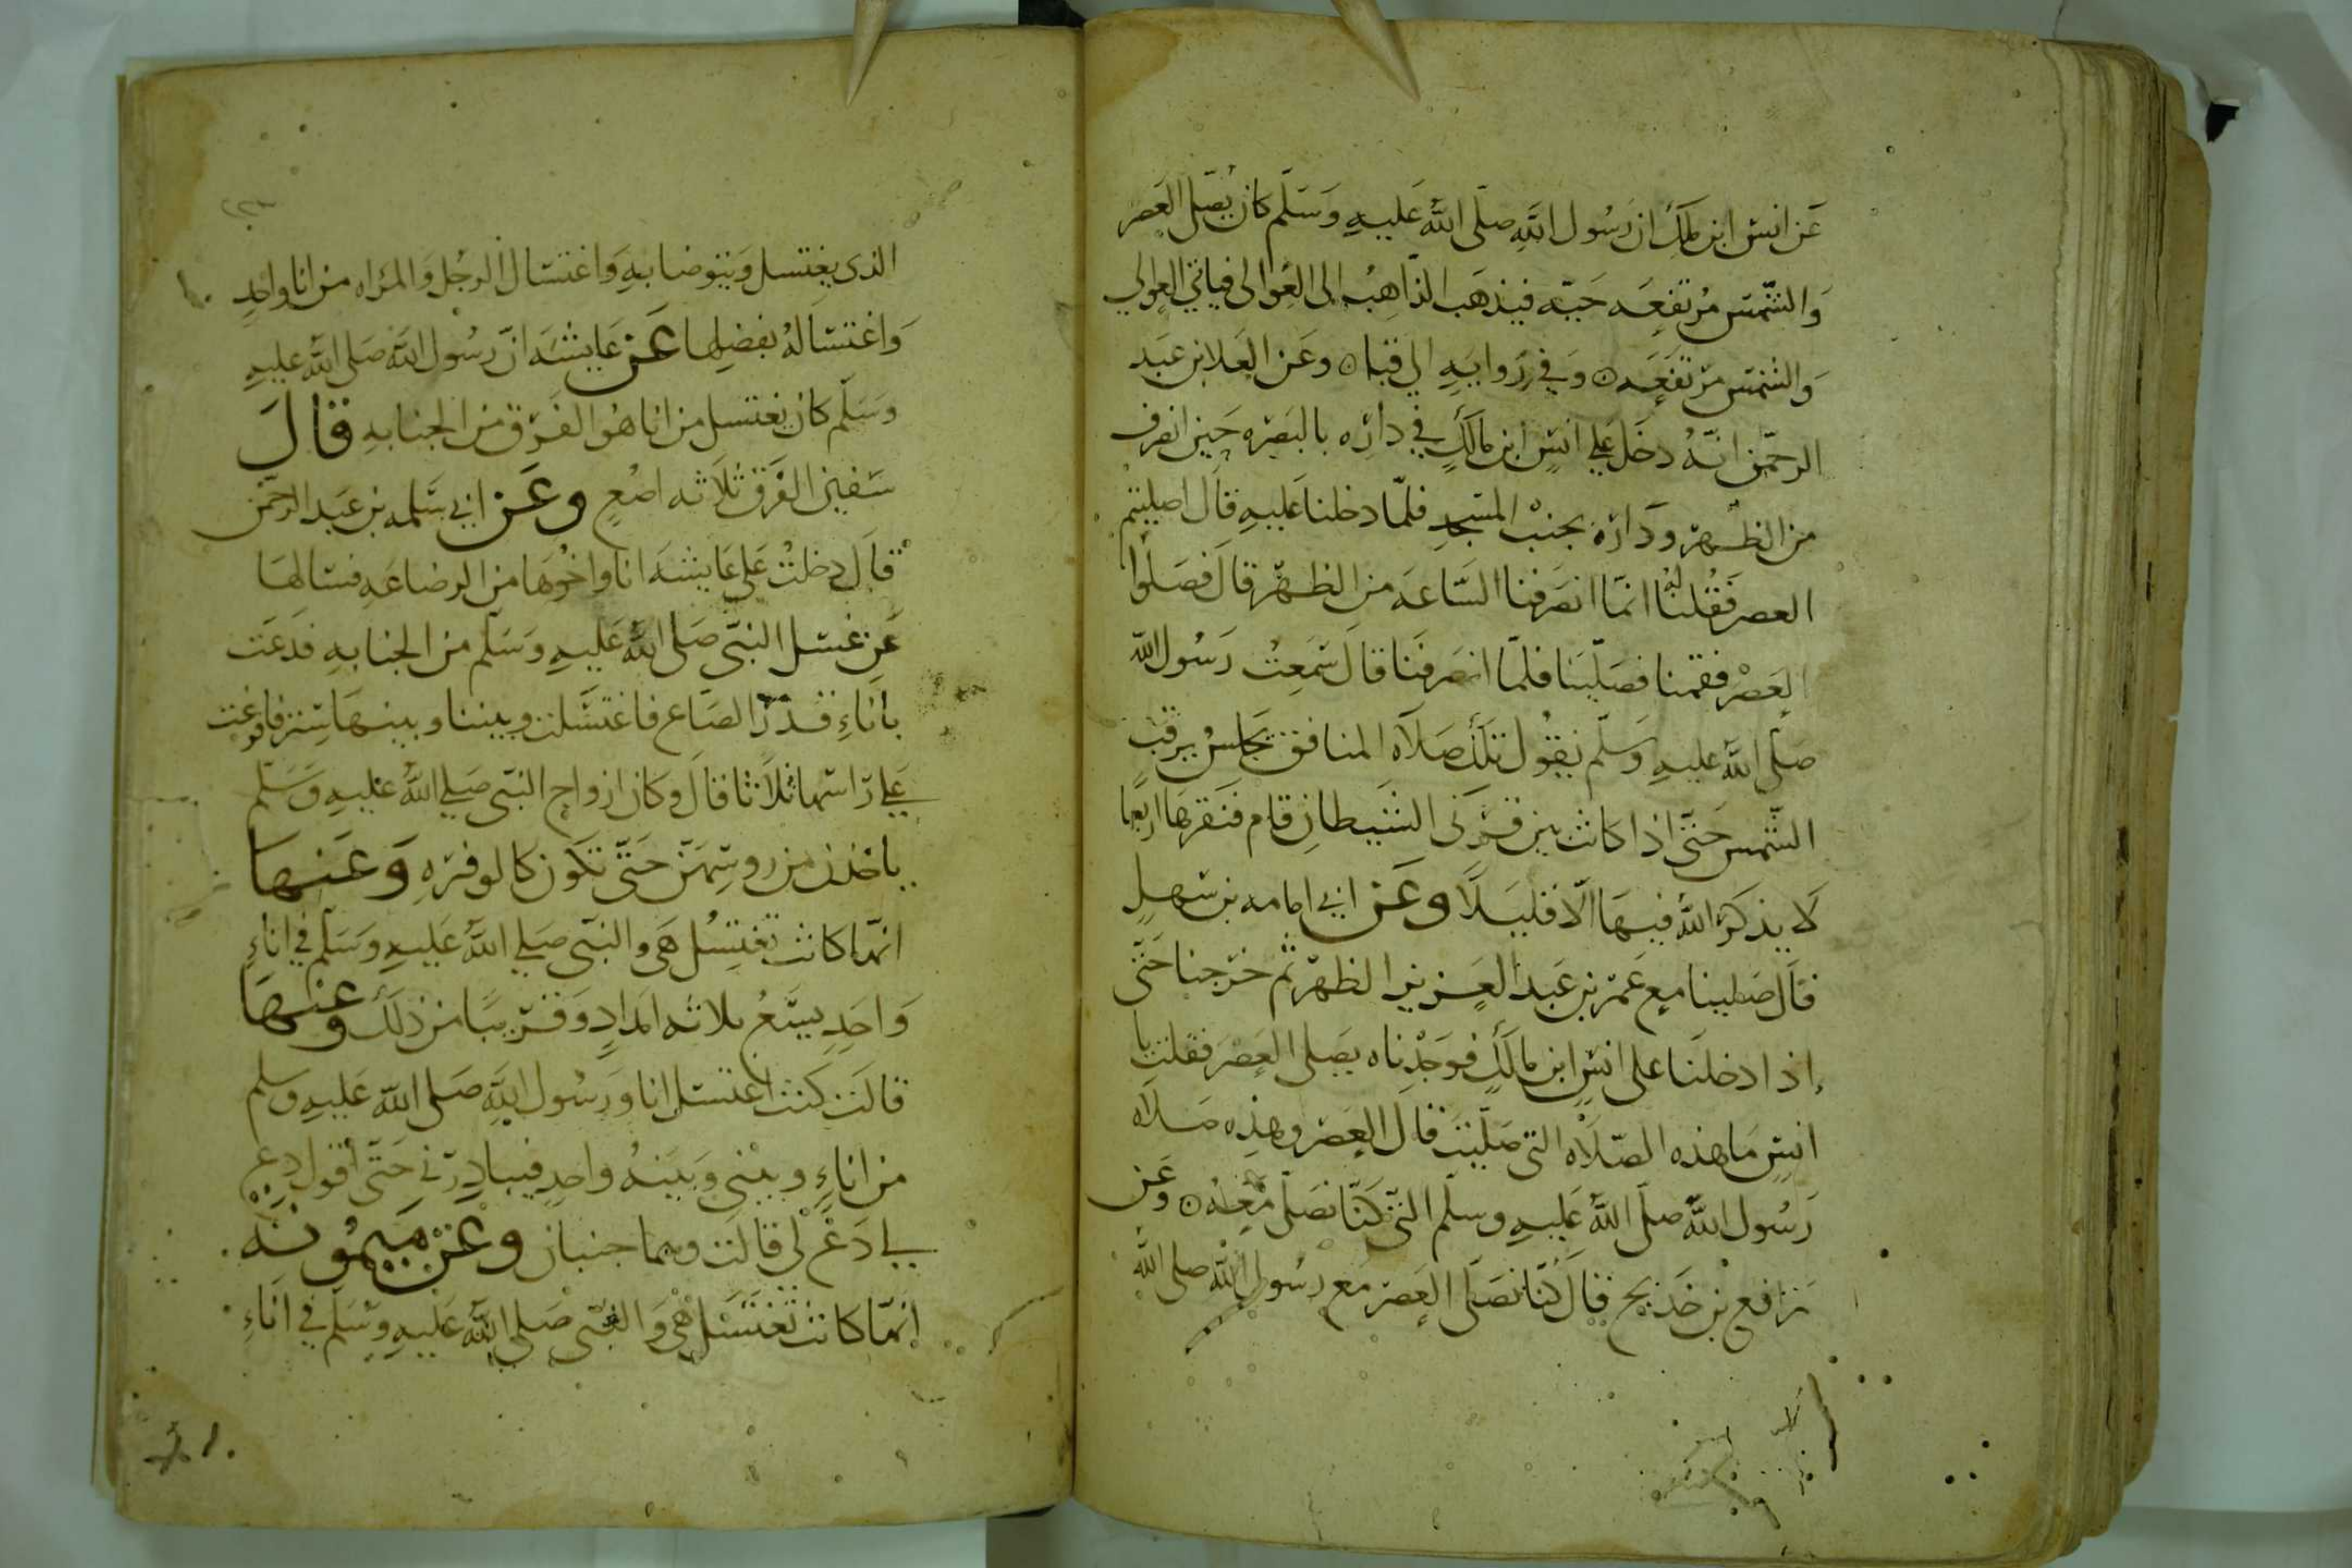 عَن انس ابن مالك ان رَسُول الله صلى الله عَليهِ وَسَلم كان يُصَلى العَصر
وَالشمس مُرتفعَه حَيّه فيذهَب الذاهِبُ الى العَوالى فياتى العوالي
وَالشمس مرتفعَه ٥ وَفي رِوايهِ الي قبا ٥ وعَن العَلا بن عَبد
الرحمن انّهُ دخَل علي انسِ ابن مالكٍ في دارِه بالبَصرَه حين انصرف
من الظهر ودَارُه بجنبْ المسجد فلمّا دخلنا عَليهِ قال اصليتمُ
العصر فَقُلنا له انمّا انصَرفنا السّاعَه من الظهر قال فصَلوا
العَصْر فقمنا فصَلّينا فلمّا انصَرفنَا قال سَمعِتُ رَسُول الله
صَلّى اللهُ عليهِ وَسَلّم يقوُل تلكَ صَلَاه المنافق يَجلسُ يرقب
الشّمس حَتّى اذا كانت بين قَرْنَى الشَيطانِ قام فنَقرهَا اربعًا
لَا يذكرُ اللهَ فيهَا الّا قليلًا وعَن ابي امامه بن سَهلٍ
قال صَلينا مع عمَر بن عَبد العَزيز الظهر ثم خرَجنا حَتّى
إذا دخلنَا على انسِ ابن مالكٍ فوَجَدْناه يصَلى العَصرَ فقلت يا
انسِ مَا هذه الصّلَاه التى صَلّيتَ قال العَصر وهذِه صَلاه
رَسُول اللهِ صلّى اللهُ عَليهِ وسلّم التى كنّا نصَلى مَعَهُ ٥ وعَن
رَافع بن خَديج قال كنّا نصَلى العَصر مع رسُول الله صلى الله
الذى يغتسل وَيتوضا بهِ وَاغتسال الرجُل وَالمرَاه من انا واحدٍ
وَاغتسالهُ بفضلِها عَن عَايشَه انّ رسُول الله صَلى اللهُ عليهِ
وَسَلّم كان يغتسل من انا هُو الفَرَق من الجنابهِ قال
سَفين الفَرَق ثلاثه اصُعٍ وعَن ابي سَلمه بن عَبد الرحمن
قال دخلتُ عَلى عَايشَه انا واخُوهَا من الرضاعَهِ فسَالهَا
عَن غسل النبّى صَلى اللهُ عَليهِ وَسَلّم من الجنابهِ فدَعَت
باناءِ قدْر الصَاع فاغتسَلت وبيننا وبينهَا سِتر فافرغت
عَلي رَاسها ثلاثا قال وكان ازواج النبّى صَلي اللهُ عليهِ وَسَلم
ياخذن من روسِهنّ حَتّى تكون كالوفرَهِ وَعَنهَا
انهّا كانت تغتسُل هَى والنبّى صَلي اللهُ عَليهِ وَسَلم في اناءٍ
وَاحَدٍ يسَعُ ثلاثه امدادٍ وَقريبًا من ذلكَ وعنهَا
قالَت كنت اغتسل انا وَرسُول اللهِ صَلى الله عَليهِ وسلم
من اناءٍ وبينى وَبينهُ واحدٍ فيبادِرُنى حَتّى اقول دع
لي دَعْ لي قالَت وهما جنبان وعَن مَيمُونَه
انهّا كانت تغتسَل هى وَالنبّى صَلى اللهُ عَليهِ وسَلّم في انَاءِ